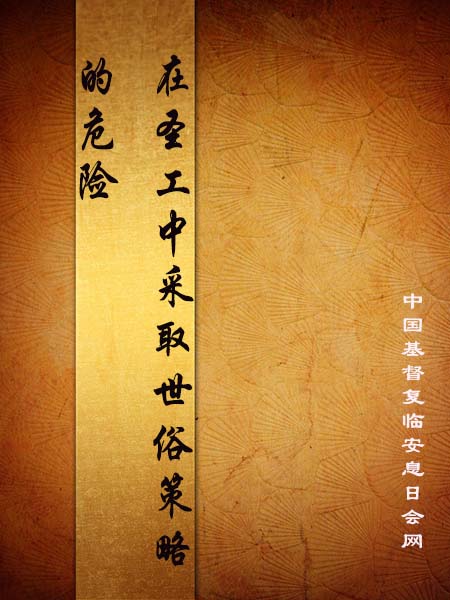 在圣工中采取世俗策略
的危险
中国基督复临安息日会网